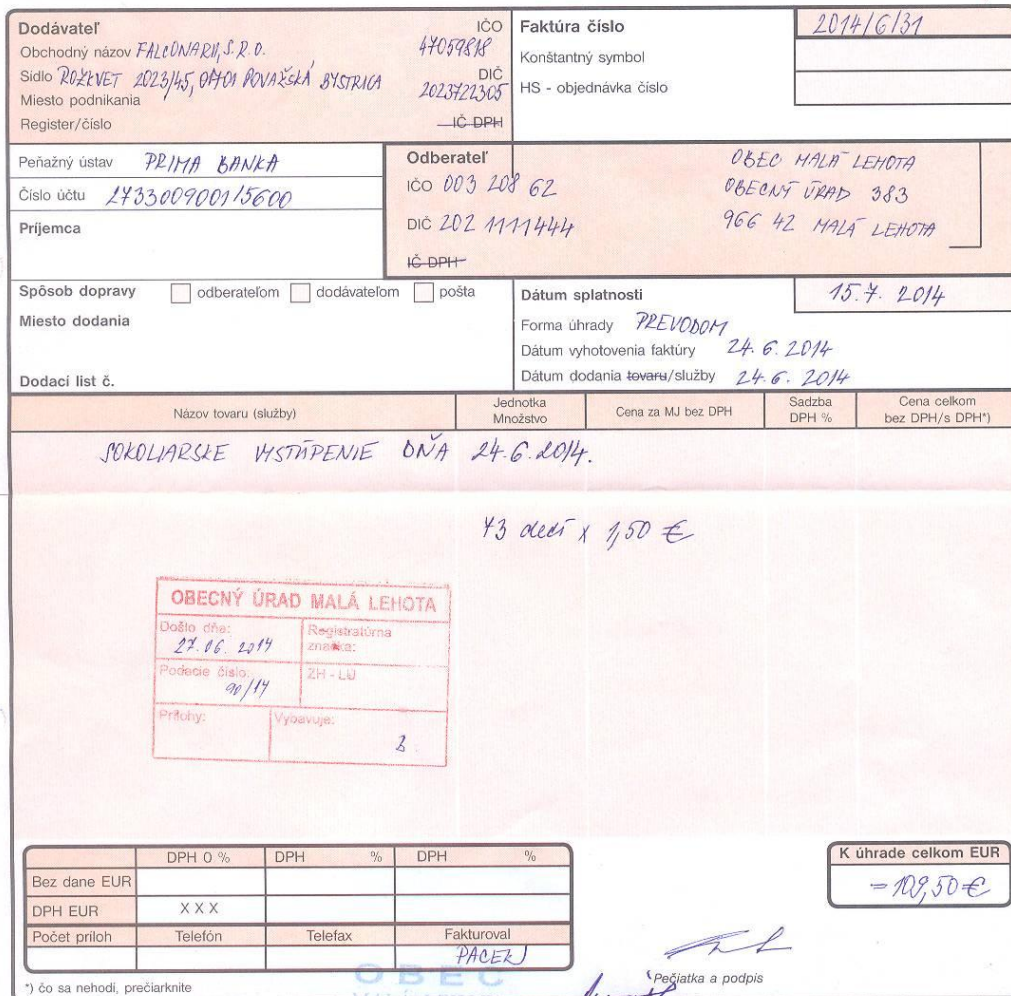 Dodávateľ IČO
Obchodný názov FALCONARII, S.R.O. 47059818
Sídlo ROZKVET 2023/45, 01701 POVAŽSKÁ BYSTRICA DIČ
Miesto podnikania 2023722305
Register/číslo IČ DPH
Faktúra číslo 2014/6/31
Konštantný symbol
HS - objednávka číslo
Peňažný ústav PRIMA BANKA
Číslo účtu 2733009001/5600
Príjemca
Odberateľ OBEC MALÁ LEHOTA
IČO 003 208 62 OBECNÝ ÚRAD 383
DIČ 202 1111444 966 42 MALÁ LEHOTA
IČ DPH
Spôsob dopravy odberateľom dodávateľom pošta
Miesto dodania
Dodací list č.
Dátum splatnosti 15.7. 2014
Forma úhrady PREVODOM
Dátum vyhotovenia faktúry 24. 6. 2014
Dátum dodania tovaru/služby 24.6. 2014
Názov tovaru (služby) Jednotka Množstvo Cena za MJ bez DPH Sadzba DPH % Cena celkom bez DPH/s DPH*)
SOKOLIARSKE VYSTÚPENIE DŇA 24.6.2014.
73 detí x 1,50 €
OBECNÝ ÚRAD MALÁ LEHOTA
Došlo dňa: Registratúrna
27.06. 2014 značka:
Podacie číslo: ZH - LÚ
90/14
Prílohy: Vybavuje:
DPH 0 % DPH % DPH %
Bez dane EUR
DPH EUR X X X
Počet príloh Telefón Telefax Fakturoval
PACEK
K úhrade celkom EUR
=109,50 €
Pečiatka a podpis
*) čo sa nehodí, prečiarknite
OBEC